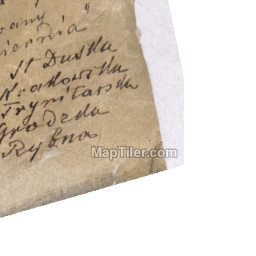 "
rany "
iernia
St Duska
Krakowska
Trynitarska
Grodzka
Rybna
MapTiler.com